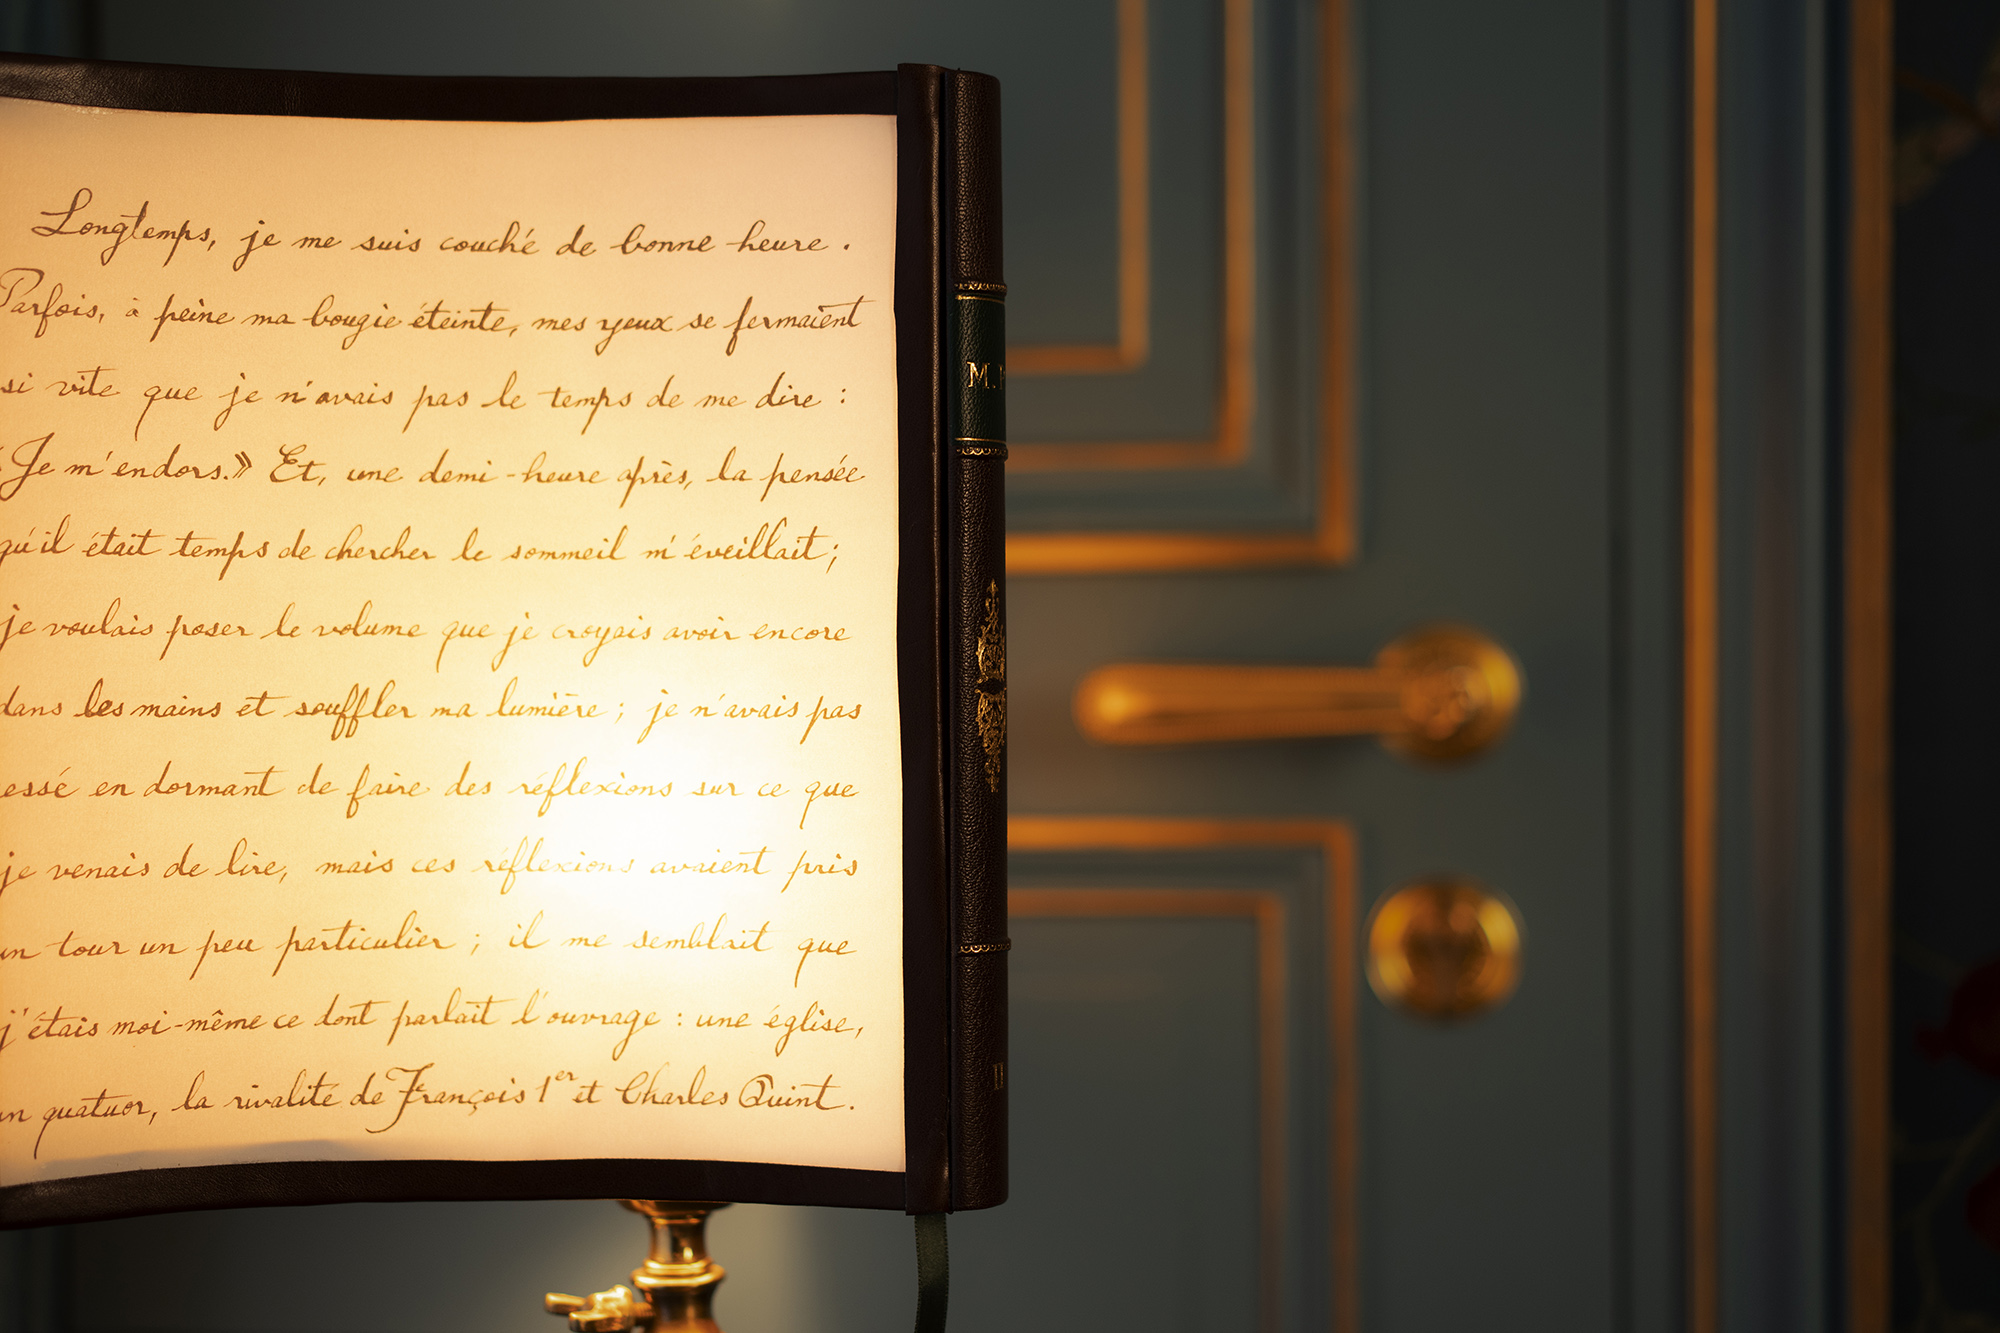 Longtemps, je me suis couché de bonne heure.
Parfois, à peine ma bougie éteinte, mes yeux se fermaient
si vite que je n'avais pas le temps de me dire :
« Je m'endors. » Et, une demi-heure après, la pensée
qu'il était temps de chercher le sommeil m'éveillait ;
je voulais poser le volume que je croyais avoir encore
dans les mains et souffler ma lumière ; je n'avais pas
essé en dormant de faire des réflexions sur ce que
je venais de lire, mais ces réflexions avaient pris
un tour un peu particulier ; il me semblait que
j'étais moi-même ce dont parlait l'ouvrage : une église,
un quatuor, la rivalité de François 1er et Charles Quint.
M.